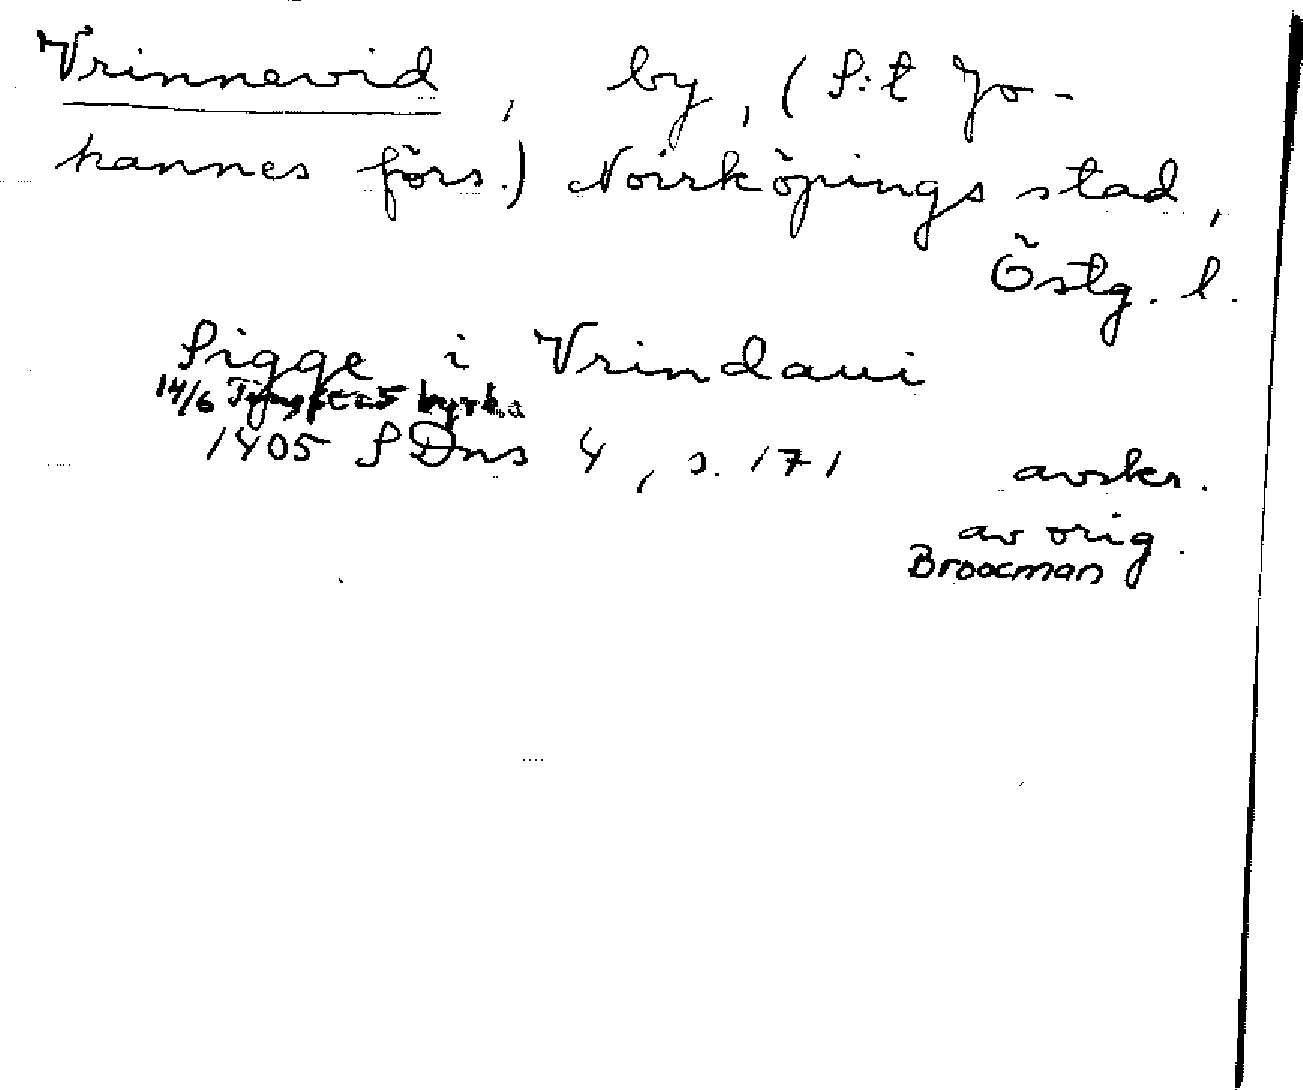 Vrinnevid, by, (S:t Jo-
hannes förs.) Norrköpings stad,
Östg. l.
Sigge i Vrindaui
14/6
1405 SDns 4, s. 171 avskr.
av orig.
Broocman